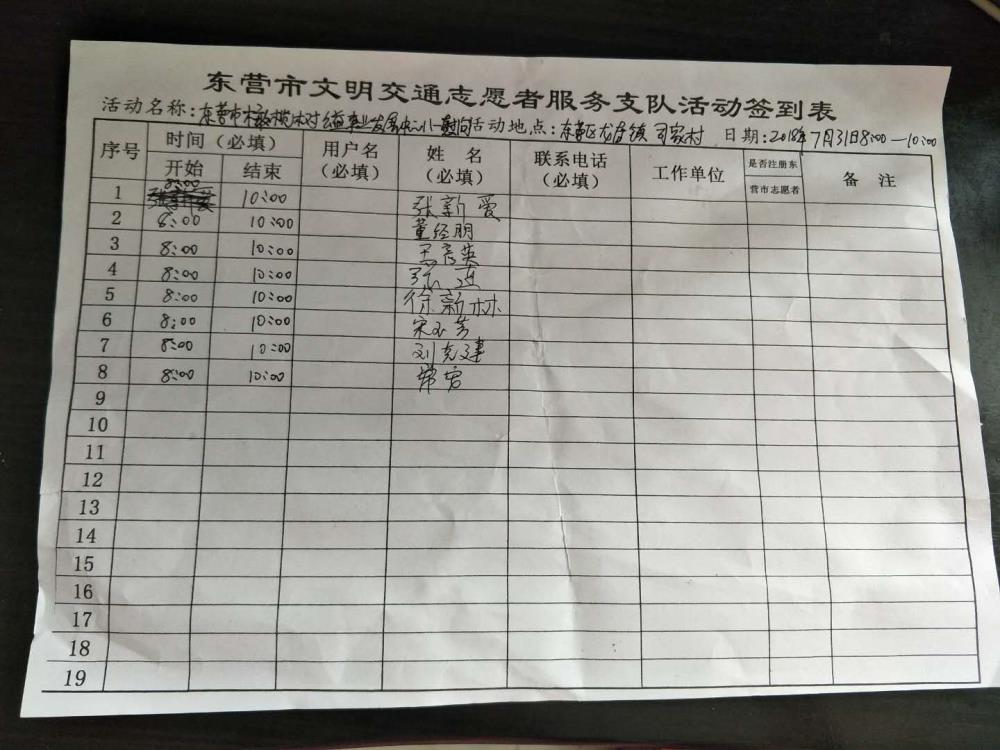 东营市文明交通志愿者服务支队活动签到表
活动名称：东营市橄榄树公益事业发展中心 活动地点：东营区龙居镇司家村 日期：2018年7月31日8:00—10:00
序号 时间（必填） 用户名（必填） 姓名（必填） 联系电话（必填） 工作单位 是否注册东营市志愿者 备注
开始 结束
1 8:00 10:00 张新爱
2 8:00 10:00 董经朋
3 8:00 10:00 王彦英
4 8:00 10:00 张
5 8:00 10:00 徐新林
6 8:00 10:00 宋玉芳
7 8:00 10:00 刘克建
8 8:00 10:00
9
10
11
12
13
14
15
16
17
18
19